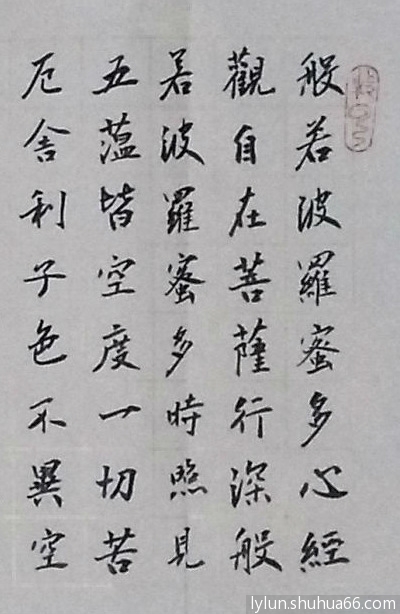 般若波羅蜜多心經
觀自在菩薩行深般
若波羅蜜多時照見
五蕴皆空度一切苦
厄舍利子色不異空
lylun.shuhua66.com